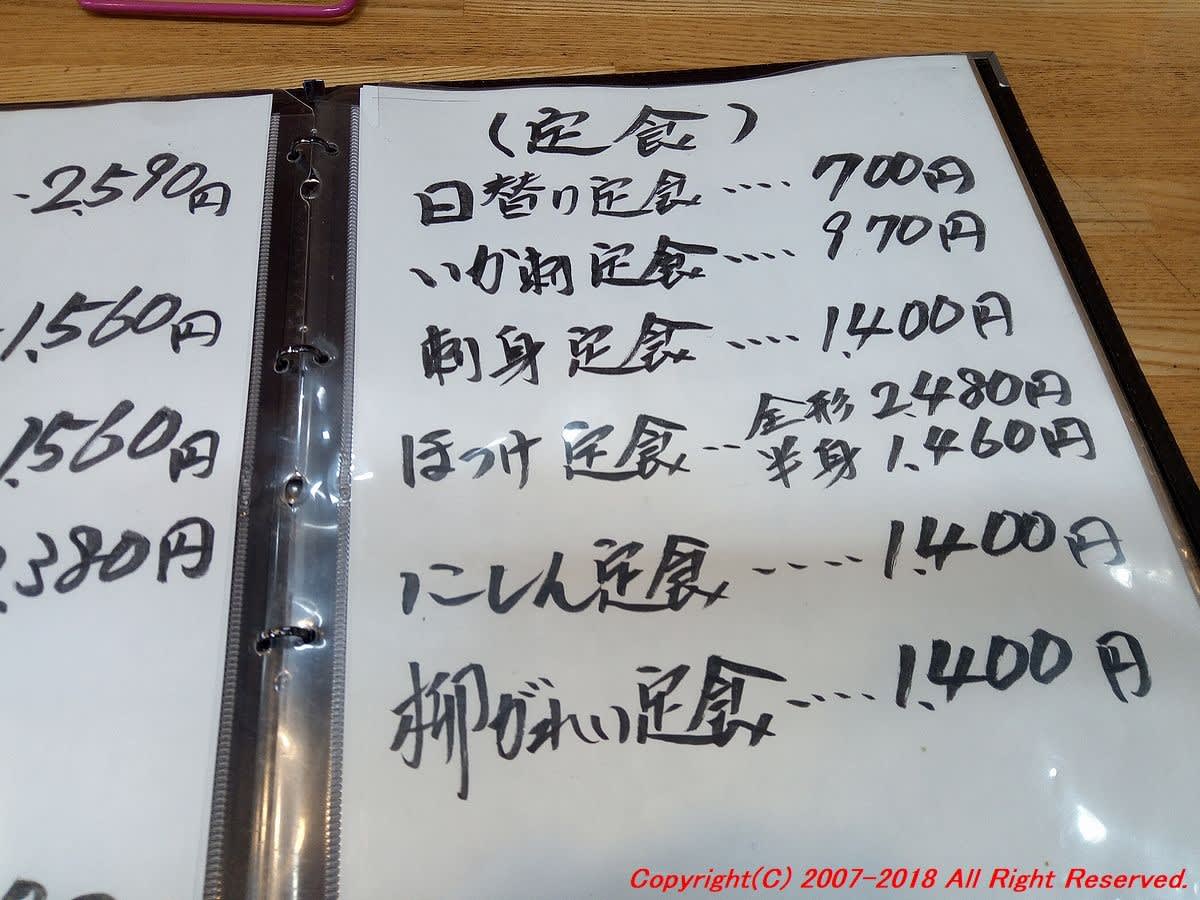 2,590円
1,560円
1,560円
,380円
(定食)
日替り定食‥‥700円
いか刺定食‥‥970円
刺身定食‥‥1,400円
ほっけ定食‥全形2,480円
半身1,460円
にしん定食‥‥1,400円
柳がれい定食‥‥1,400円
Copyright(C) 2007-2018 All Right Reserved.